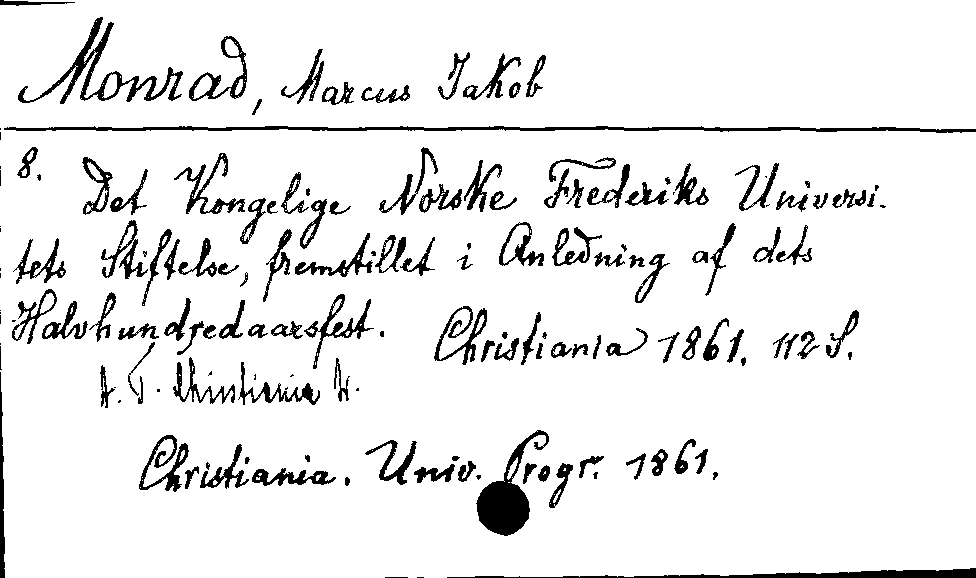 Monrad, Marcus Jakob
8. Det Kongelige Norske Frederiks Universi-
tets Stiftelse, fremstillet i Anledning af dets
Halvhundredaarsfest. Christiania 1861. 112 S.
Christiania
Christiania. Univ. Progr. 1861.